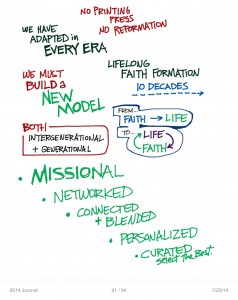 NO PRINTING
PRESS
NO REFORMATION
WE HAVE
ADAPTED in
EVERY ERA
WE MUST
BUILD a
NEW
MODEL
LIFELONG
FAITH FORMATION
10 DECADES
BOTH
INTERGENERATIONAL
+ GENERATIONAL
FROM...
FAITH → LIFE
TO...
LIFE
FAITH
• MISSIONAL
• NETWORKED
• CONNECTED
+ BLENDED
• PERSONALIZED
• CURATED
select the Best.
2014 Journal
91 / 94
7/25/14